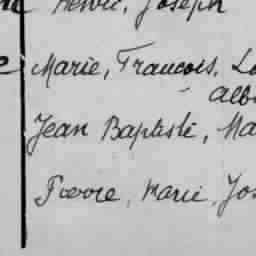 Hervé, Joseph
Marie, Francois, Lo
Alb
Jean Baptiste, Ma
Pierre, Marie, Jos